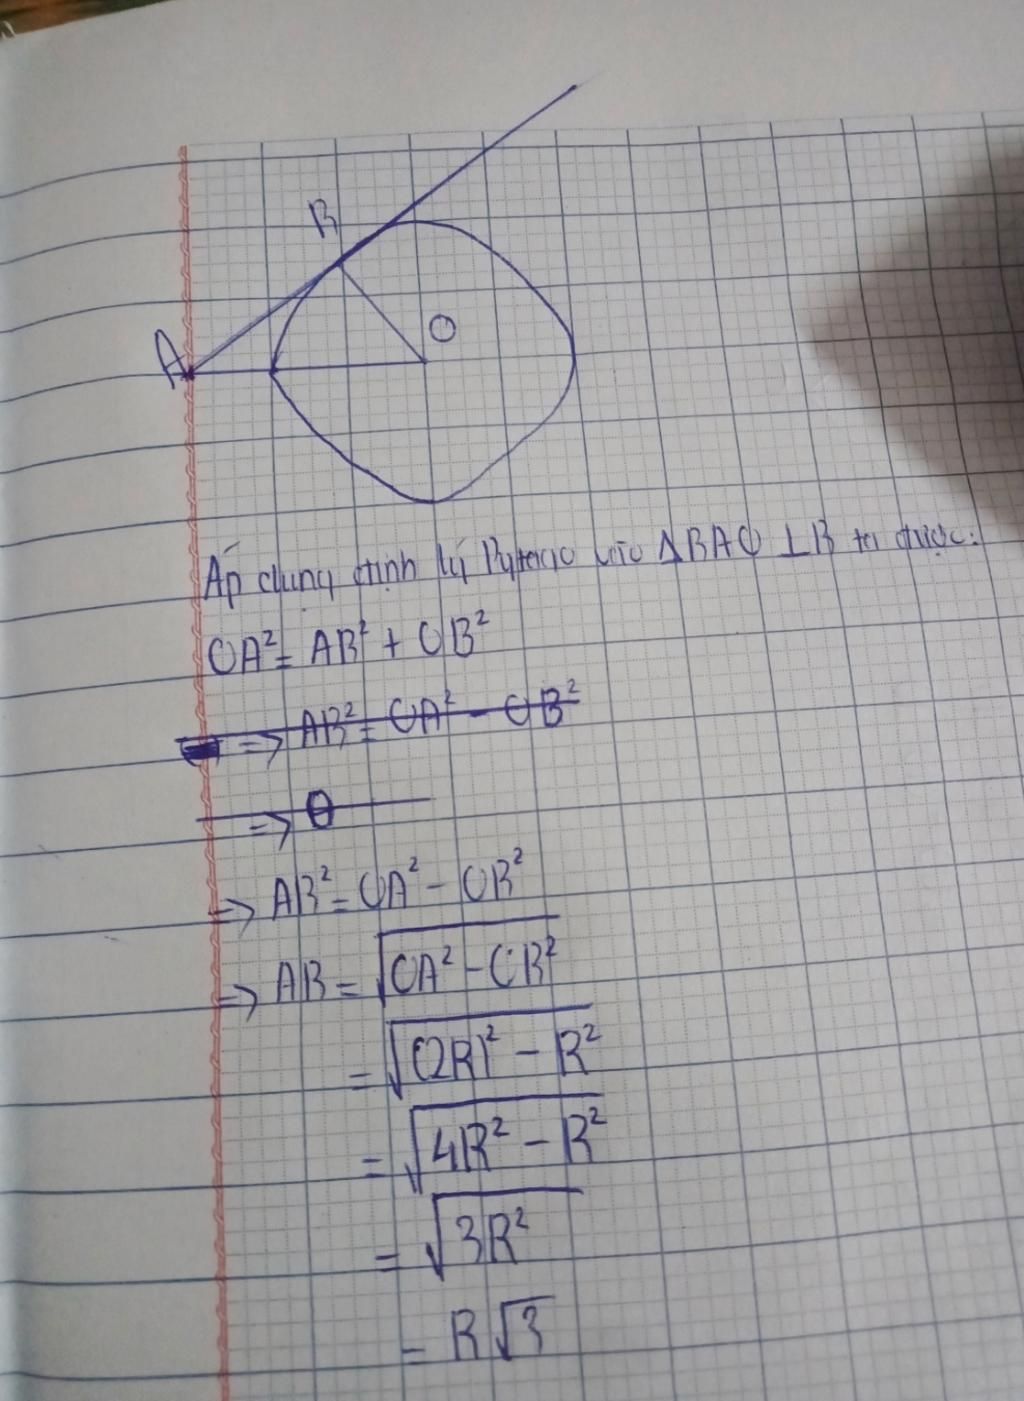 B
A
O
Áp dụng định lý Pytago vào ΔBAO ⊥B ta được:
OA² = AB² + OB²
=> AB² = OA² - OB²
=> O
=> AB² = OA² - OB²
=> AB = √(OA² - OB²)
= √((2R)² - R²)
= √(4R² - R²)
= √(3R²)
= R√3